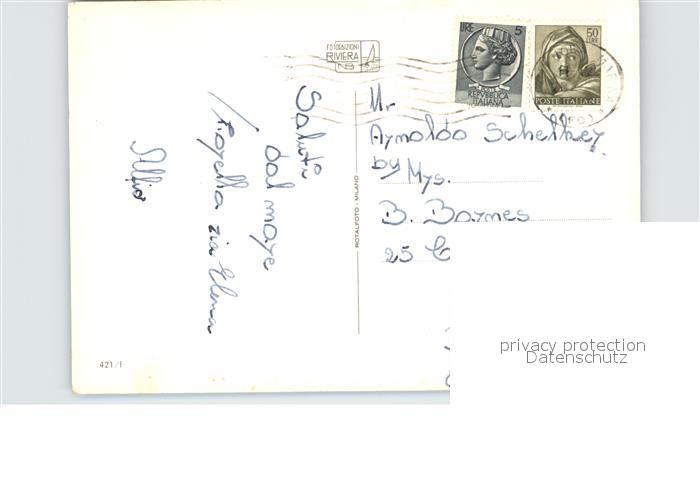 FOTOEDIZIONI
RIVIERA
LIRE 5
REPUBBLICA
ITALIANA
50
LIRE
POSTE ITALIANE
Saluti
dal mare
zia Elena
ROTALFOTO - MILANO
Mr
Arnoldo Schelkey
by Mrs.
B. Barnes
25
421/F
privacy protection
Datenschutz